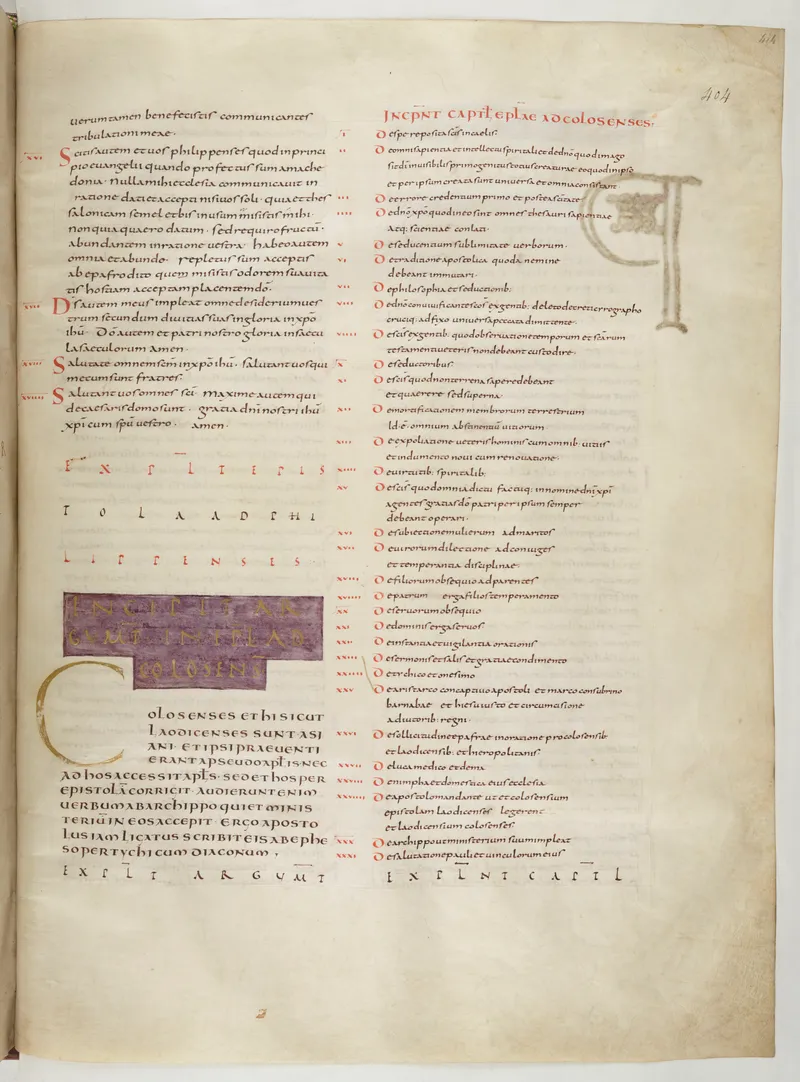 404
uerumtamen benefecistis communicantes
tribulationi meae·
XVI Scitis autem et uos philippenses quod in princi
pio euangelii quando profectus sum a mache
donia· nulla mihi ecclesia communicauit in
ratione dati et accepti nisi uos soli· quia et thes
salonicam semel et bis in usum misistis mihi·
non quia quaero datum· sed requiro fructū·
abundantem in ratione uestra· habeo autem
omnia et abundo· repletus sum acceptis
ab epafrodito quem misistis odorem suauita
tis hostiam acceptam placentem dō·
XVII Ds autem meus impleat omne desiderium ues
trum secundum diuitias suas in gloria in xpō
ihū· Dō autem et patri nostro gloria in saecu
la saeculorum amen·
XVIII Salutate omnem scm̄ in xpō ihū· salutant uos qui
mecum sunt fratres·
XVIIII Salutant uos omnes sci· maxime autem qui
de caesaris domo sunt· gratia dnī nostri ihū
xpī cum spū uestro· amen·
EXPLI TEPIS
TOLA AD PHI
LIPPENSES
INCIPIT AR
GUMT IN EPLA AD
COLOSENS
COLOSENSES ET HI SICUT
LAODICENSES SUNT ASI
ANI· ET IPSI PRAEUENTI
ERANT A PSEUDOAPLIS NEC
AD HOS ACCESSIT APLS· SED ET HOS PER
EPISTOLĀ CORRICIT· AUDIERUNT ENIM
UERBUM AB ARCHIPPO QUI ET MINIS
TERIŪ IN EOS ACCEPIT· ERGO APOSTO
LUS IAM LICATUS SCRIBIT EIS AB EPHE
SO PER TYCHICUM DIACONUM·
EXPLT ARGUMT
INCPNT CAPIT EPLAE AD COLOSENSES·
I De spe reposita scis in caelis·
II De omni sapientia et intellectu spiritali et de dnō quod imago
sit dī inuisibilis primogenitus totius creaturae eo quod in ipso
et per ipsum creata sint uniuersa et omnia consistant
III De errore credentium primo et postea scitate
IIII De dnō xpō quod in eo sint omnes thesauri sapientiae
atq· scientiae conlati·
V De seducentium sublimitate uerborum·
VI De traditione apostolica quod a nemine
debeant immutari·
VII De philosophia et seductionib·
VIII De dnō conuiuificante scos ex gentib· deleto decreti cyrographo
cruciq· adfixo uniuersa peccata dimittente·
VIIII De scis ex gentib· quod obseruationem temporum et escarum
testamenti ueteris non debeant custodire·
X De seductoribus
XI De scis quod non terrena sapere debeant
et quaerere sed superna·
XII De mortificationem membrorum terrestrium
id·e· omnium abstinentiā uitiorum
XIII De expoliatione ueteris hominis cum omnib· uitiis
et indumento noui cum renouatione·
XIIII De uirtutib· spiritalib·
XV De scis quod omnia dictu factuq· in nomine dnī xpī
agentes gratias dō patri per ipsum semper
debeant operari·
XVI De subiectione mulierum ad maritos
XVII De uirorum dilectione ad coniuges
et temperantia disciplinae·
XVIII De filiorum obsequio ad parentes
XVIIII De patrum erga filios temperamento
XX De seruorum obsequio
XXI De dominis erga seruos
XXII De instantia et uigilantia orationis
XXIII De sermonis et salis et gratiae condimento
XXIIII De tychico et onesimo
XXV De aristarco concaptiuo apostoli et marco consubrino
barnabae et hiesu iusto et circumcisione
adiutorib· regni·
XXVI De sollicitudine epafrae in oratione pro colosensib·
et laodicensib· et hieropolitanis
XXVII De luca medico et dema
XXVIII De nimpha et domestica eius ecclesia
XXVIIII De apostolo mandante ut et colosensium
epistolam laodicenses legerent
et laodicensium colosenses·
XXX De archippo ut ministerium suum impleat
XXXI De salutatione pauli et uinculorum eius
EXPLNT CAPTL